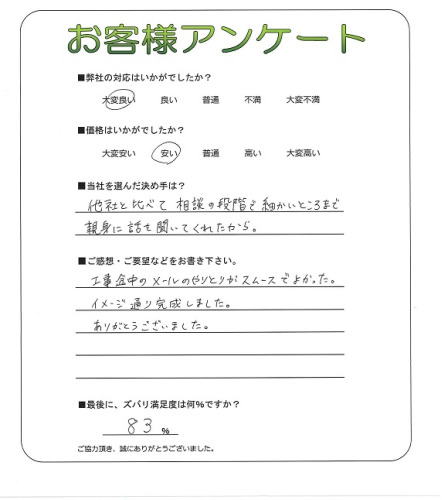 お客様アンケート
■弊社の対応はいかがでしたか?
大変良い 良い 普通 不満 大変不満
■価格はいかがでしたか?
大変安い 安い 普通 高い 大変高い
■当社を選んだ決め手は?
他社と比べて 相談の段階で細かいところまで
親身に話を聞いてくれたから。
■ご感想・ご要望などをお書き下さい。
工事途中のメールのやりとりがスムースでよかった。
イメージ通り完成しました。
ありがとうございました。
■最後に、ズバリ満足度は何%ですか?
83%
ご協力頂き、誠にありがとうございました。